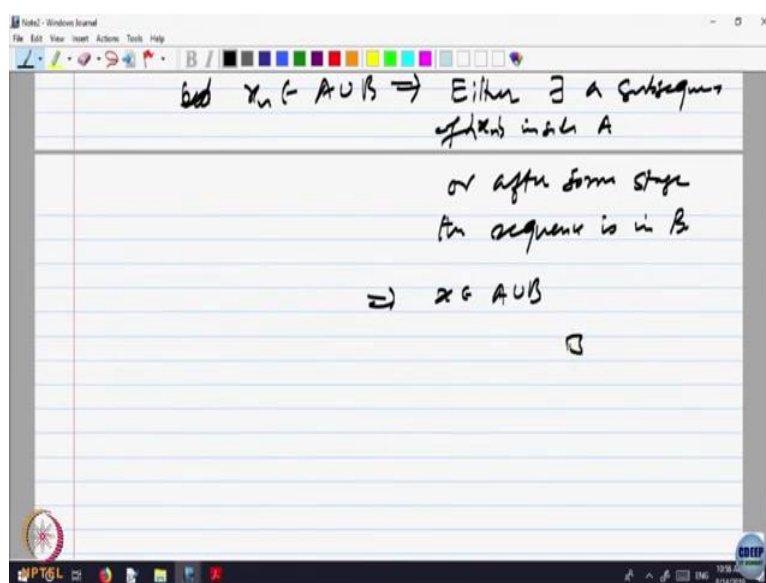 Note2 - Windows Journal
File Edit View Insert Actions Tools Help
xₙ ∈ A ∪ B ⇒ Either ∃ a subsequence
of {xₙ} inside A
or after some stage
the sequence is in B
⇒ x ∈ A ∪ B
NPTEL
CDEEP
IIT BOMBAY
ENG